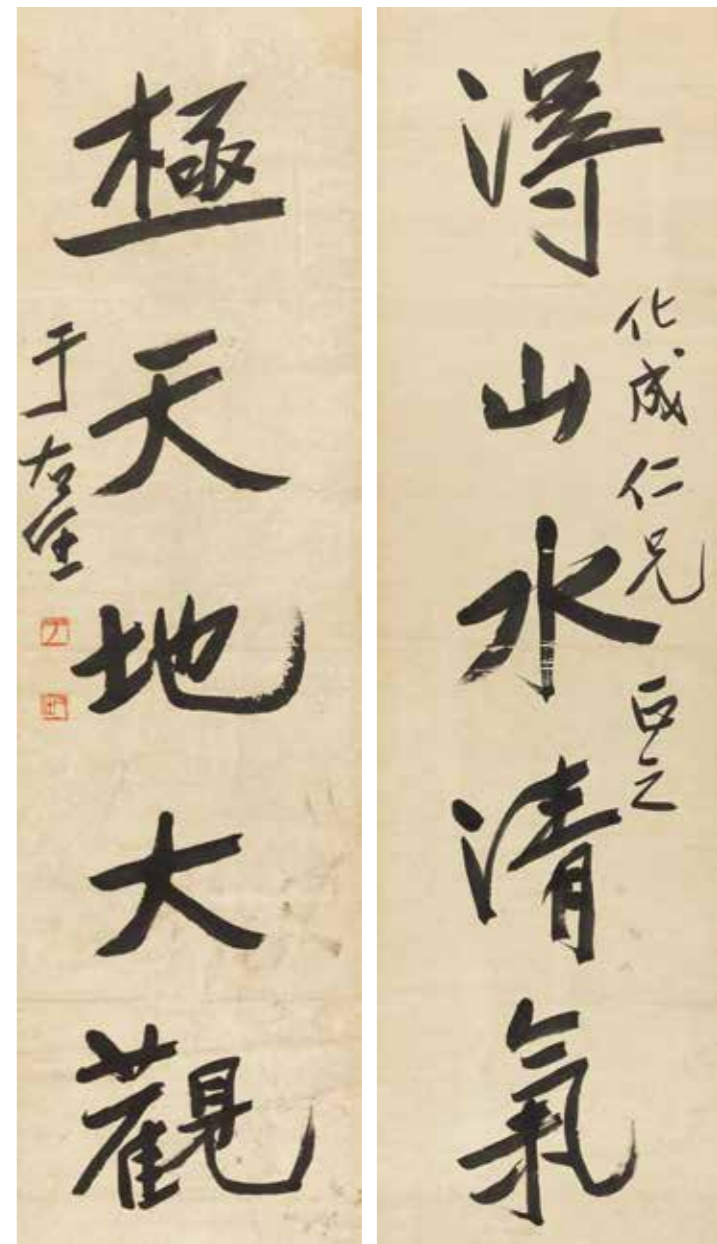 得山水清氣
化成仁兄正之
極天地大觀
于右任